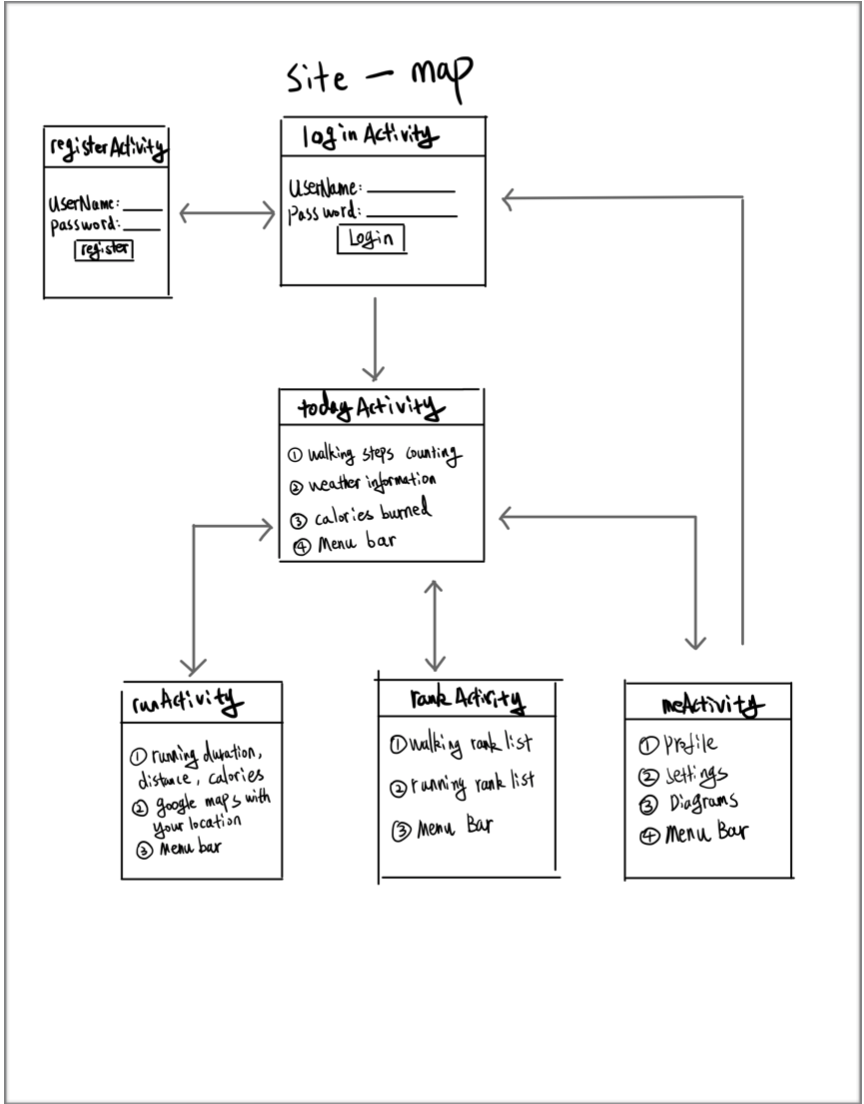 site - map
registerActivity
UserName:
password:
register
loginActivity
UserName:
password:
Login
todayActivity
① walking steps counting
② weather information
③ calories burned
④ Menu bar
runActivity
① running duration,
distance, calories
② google maps with
your location
③ Menu bar
rankActivity
① walking rank list
② running rank list
③ Menu Bar
meActivity
① Profile
② Settings
③ Diagrams
④ Menu Bar